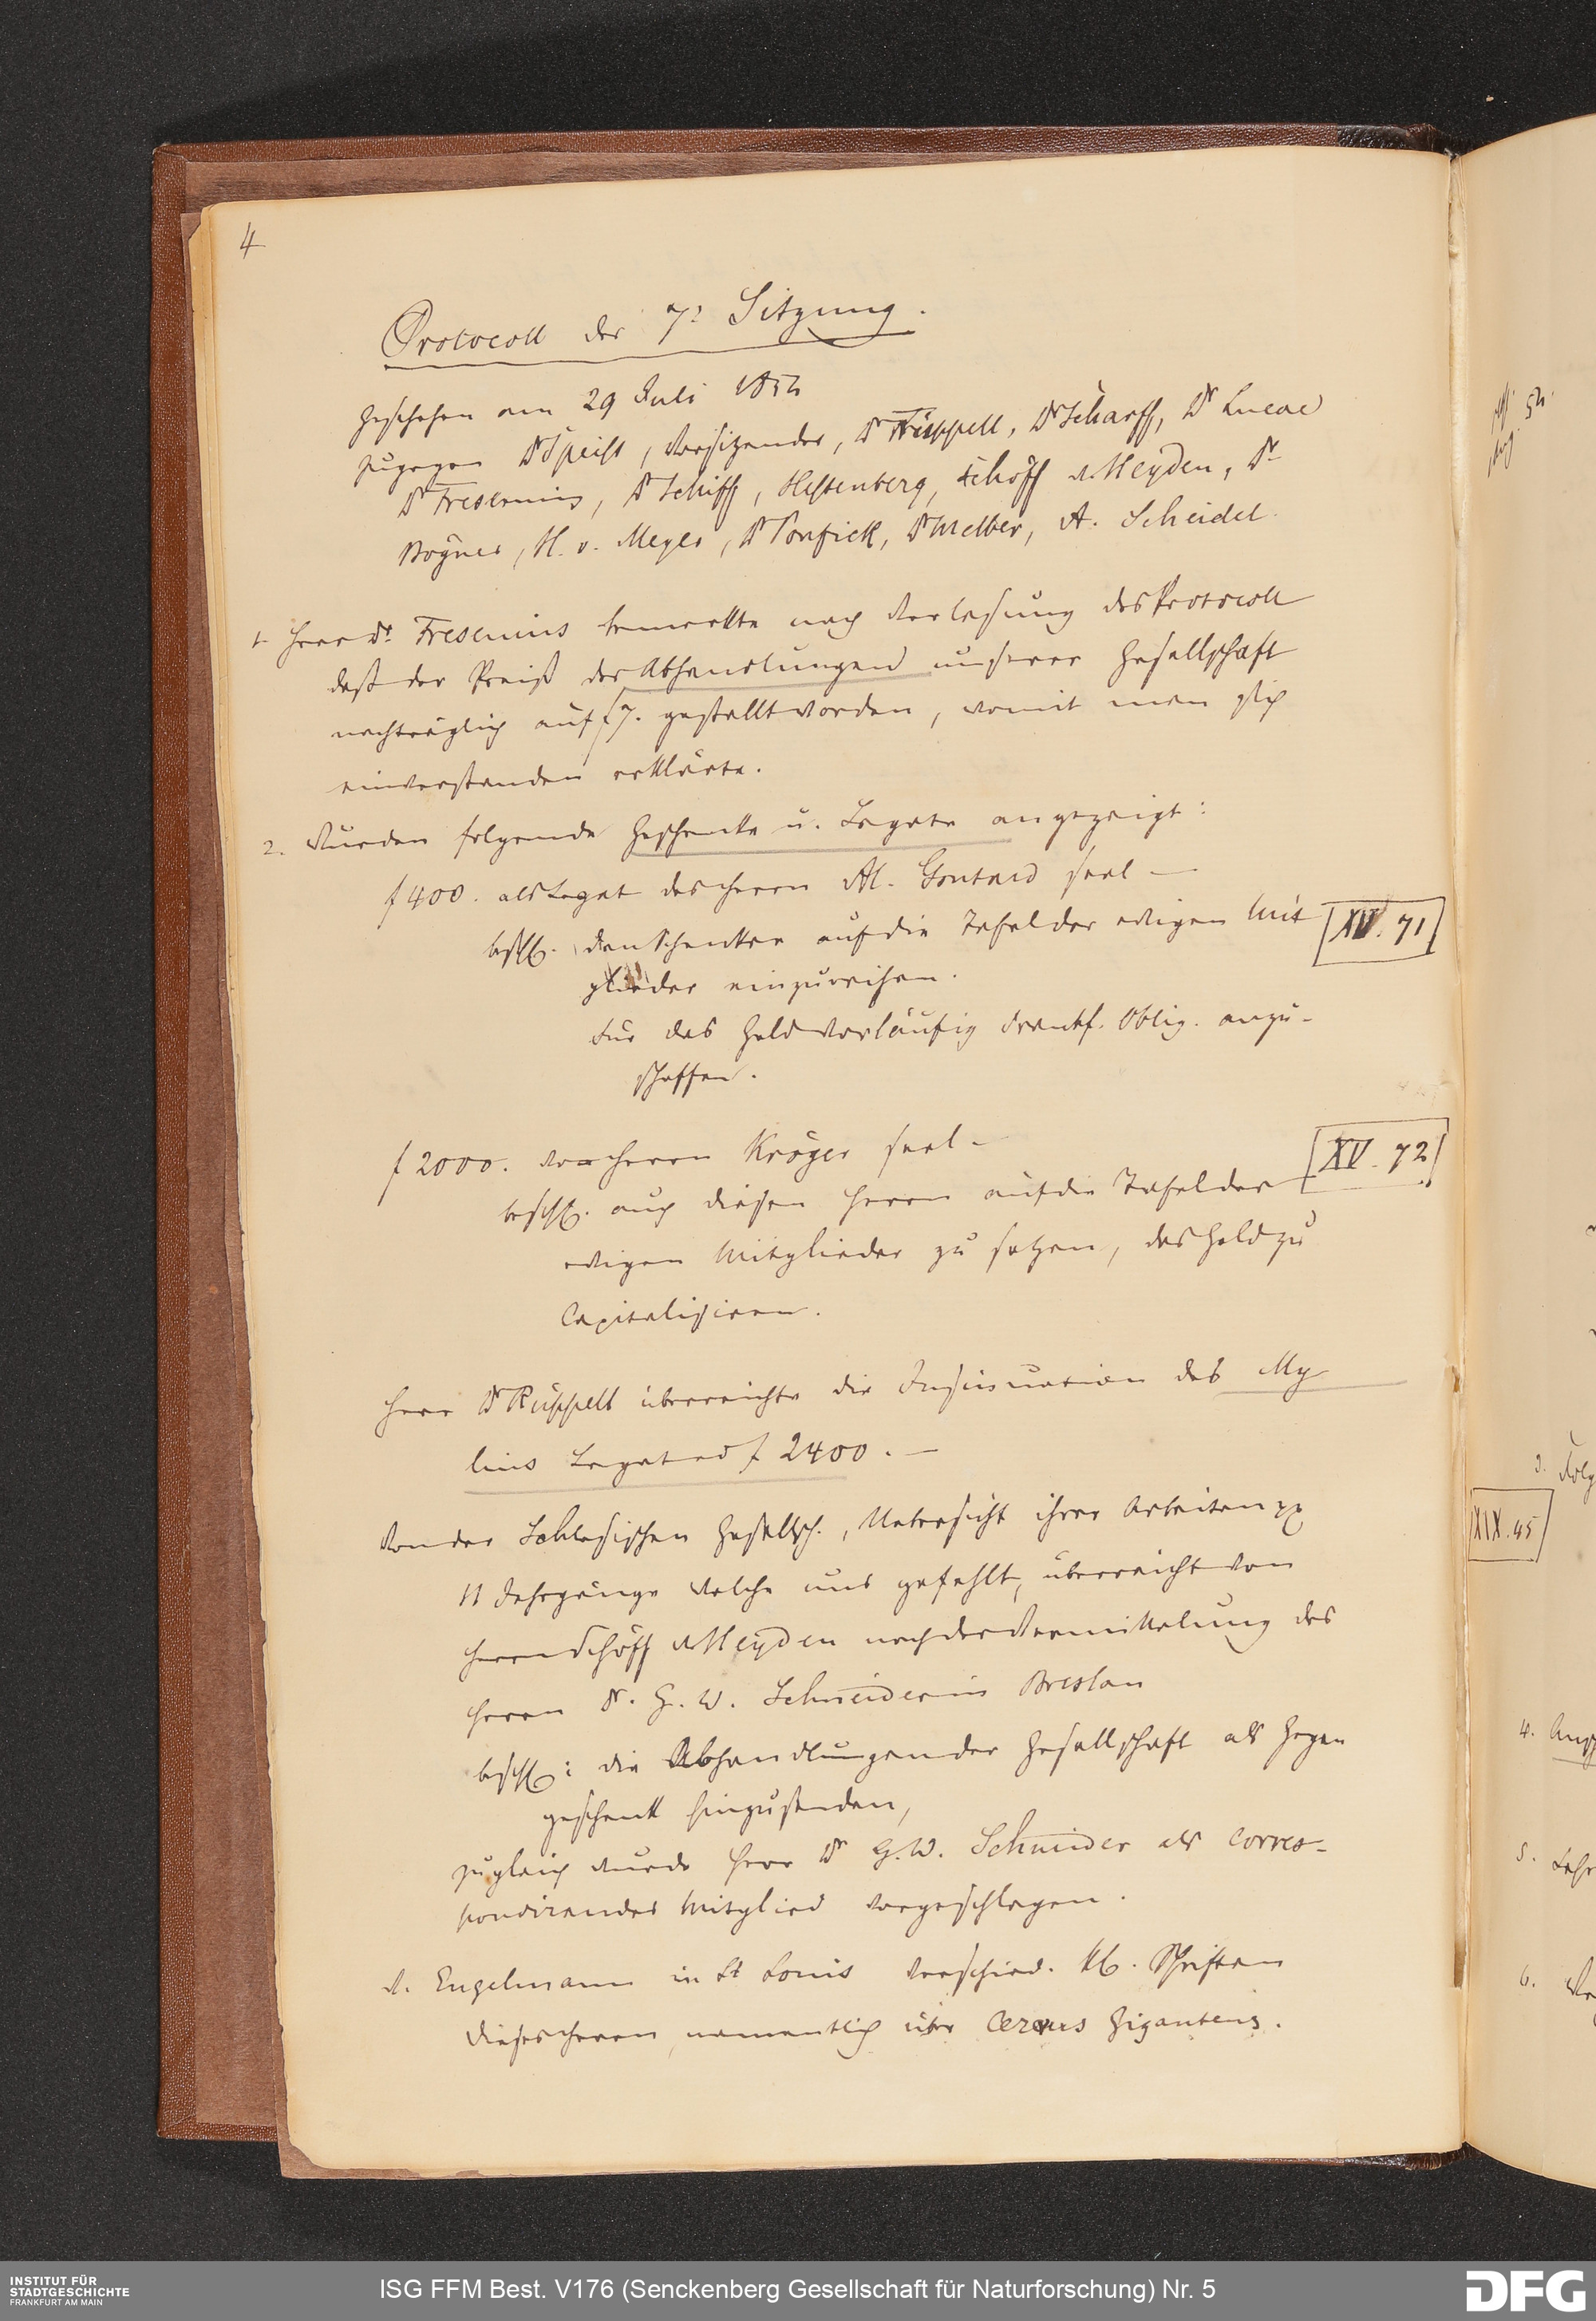 4
Protocoll der 7r Sitzung.
Geschehen am 29 Juli 1854
zugegen Dr Spieß, Vorsitzender, Dr Rüppell, Dr Scharff, Dr Lucae
Dr Fresenius, Dr Schiff, Hessenberg, Schöff v. Heyden, Dr
Bögner, H. v. Meyer, Dr Ponfick, Dr Melber, A. Scheidel.
1. Herr Dr. Fresenius bemerkte nach Verlesung des Protocoll
daß der Preiß der Abhandlungen unserer Gesellschaft
nachträglich auf f 7. gestellt worden, womit man sich
einverstanden erklärte.
2. Wurden folgende Geschenke u. Legate angezeigt:
f 400. als Legat des Herrn Al. Gontard seel.
beschl. den Schenker auf die Tafel der ewigen Mit
XV. 71
glieder einzureihen.
Für das Geld vorläufig Frankf. Oblig. anzu-
schaffen.
f 2000. von Herrn Kröger seel.
XV. 72
beschl. auch diesen Herrn auf die Tafel der
ewigen Mitglieder zu setzen, das Geld zu
Capitalisiren.
Herr Dr Rüppell überreichte die Insinuation des My
lius Legates f 2400. —
Von der Schlesischen Gesellsch., Uebersicht ihrer Arbeiten
11 Jahrgänge welche uns gefehlt, überreicht von
Herrn Schöff v Heyden nach der Vermittelung des
Herrn Dr. G. W. Schneider in Breslau
beschl: die Abhandlungen der Gesellschaft als Gegen
geschenk hinzusenden,
zugleich wurde Herr Dr G. W. Schneider als corres-
pondirendes Mitglied vorgeschlagen.
v. Engelmann in St Louis verschied. kl. Schriften
dieses Herrn, namentlich über Cereus Giganteus.
54.
XIX. 45
4.
5.
6.
INSTITUT FÜR
STADTGESCHICHTE
FRANKFURT AM MAIN
ISG FFM Best. V176 (Senckenberg Gesellschaft für Naturforschung) Nr. 5
DFG